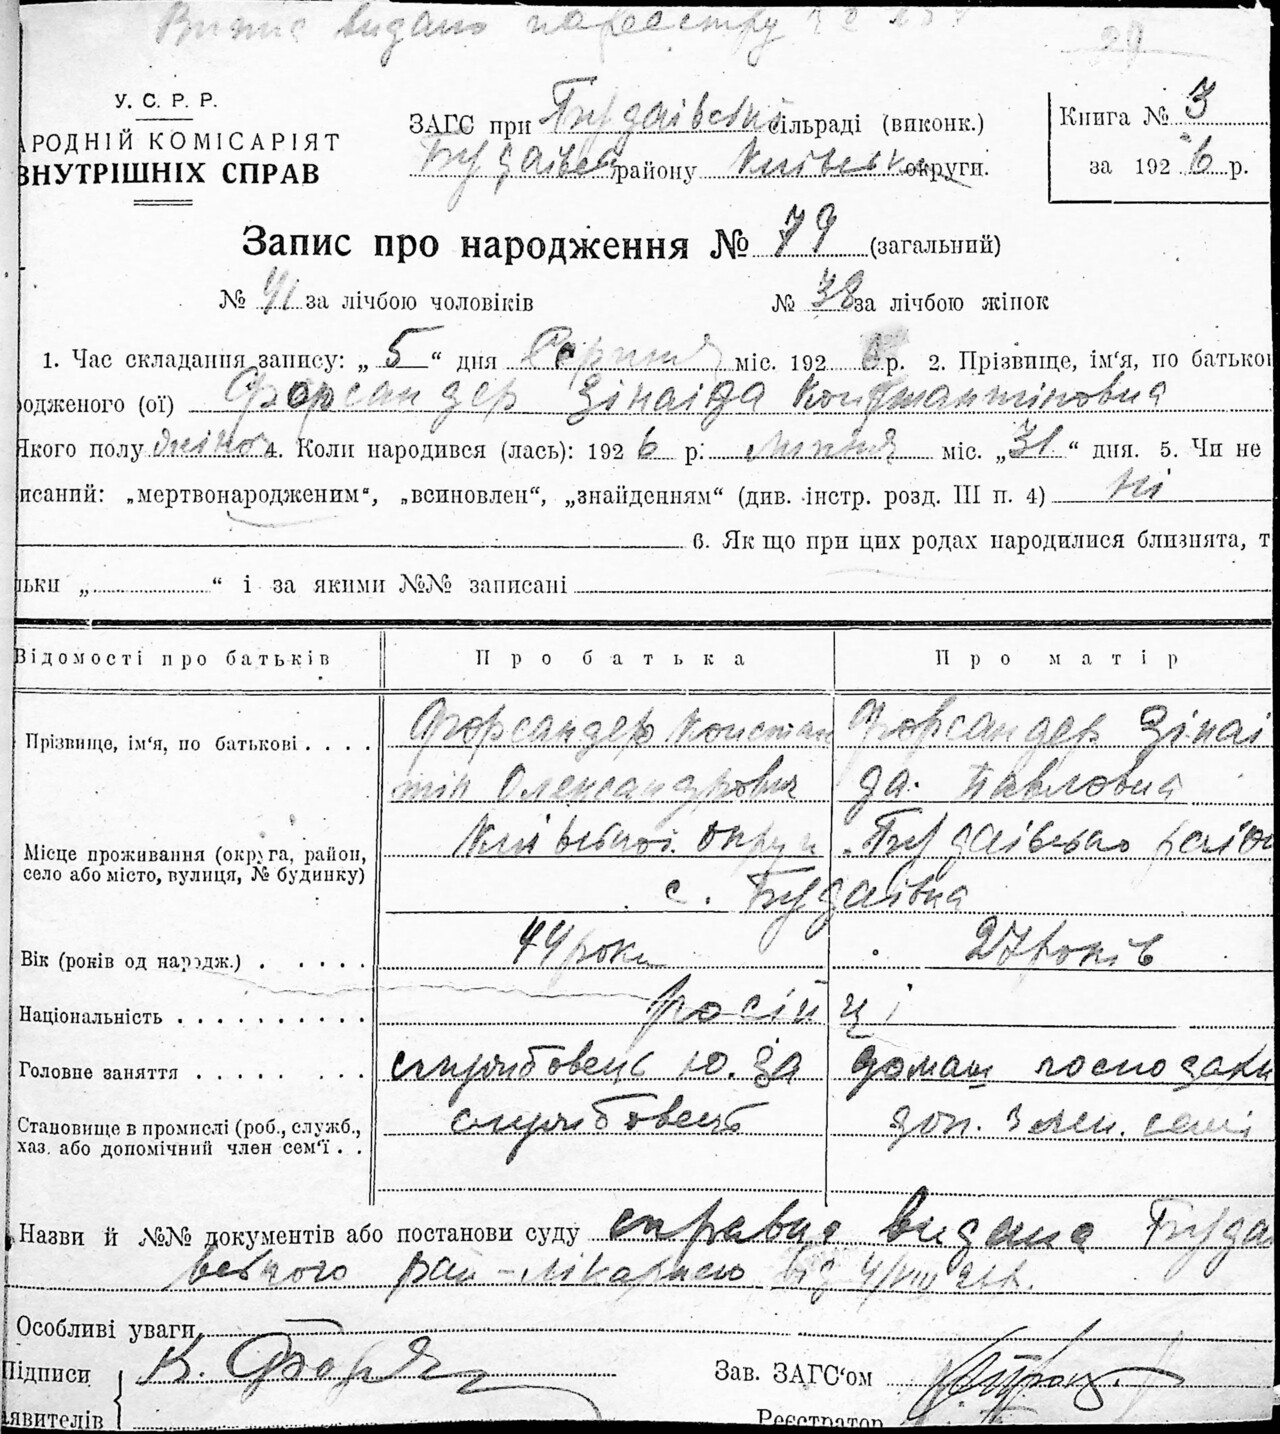 Витис видано пареєстру
29
У. С. Р. Р.
АРОДНІЙ КОМІСАРІЯТ
ВНУТРІШНІХ СПРАВ
ЗАГС при Будаівській сільраді (виконк.)
Будаівськ району Київської округи.
Книга № 3
за 1926 р.
Запис про народження № 79 (загальний)
№ 41 за лічбою чоловіків № 38 за лічбою жінок
1. Час складання запису: „ 5 “ дня Серпня міс. 1926 р. 2. Прізвище, ім'я, по батькові
одженого (ої) Форсандер Зінаіда Константіновна
Якого полу жіноч 4. Коли народився (лась): 1926 р: липня міс. „31“ дня. 5. Чи не
исаний: „мертвонародженим“, „всиновлен“, „знайденням“ (див. інстр. розд. III п. 4) ні
6. Як що при цих родах народилися близнята, т
льки „ “ і за якими №№ записані
Відомості про батьків Про батька Про матір
Прізвище, ім'я, по батькові . . . . Форсандер Констан Форсандер Зінаі
тін Олександрович да Павловна
Місце проживання (округа, район, Київської округи Будаівсько район
село або місто, вулиця, № будинку) с. Будаівка
Вік (років од народж.) . . . . . 44 роки 27 років
Національність . . . . . . . . . . російці
Головне заняття . . . . . . . . службовець Ю. За домаш господарк
Становище в промислі (роб., служб., службовець доп. член. семі
хаз. або допомічний член сем'ї . .
Назви й №№ документів або постанови суду справка видана Будаі
вського рай-лікарнею від 4/VIII 26р.
Особливі уваги
Підписи К. Форс
аявителів
Зав. ЗАГС'ом
Реєстратор